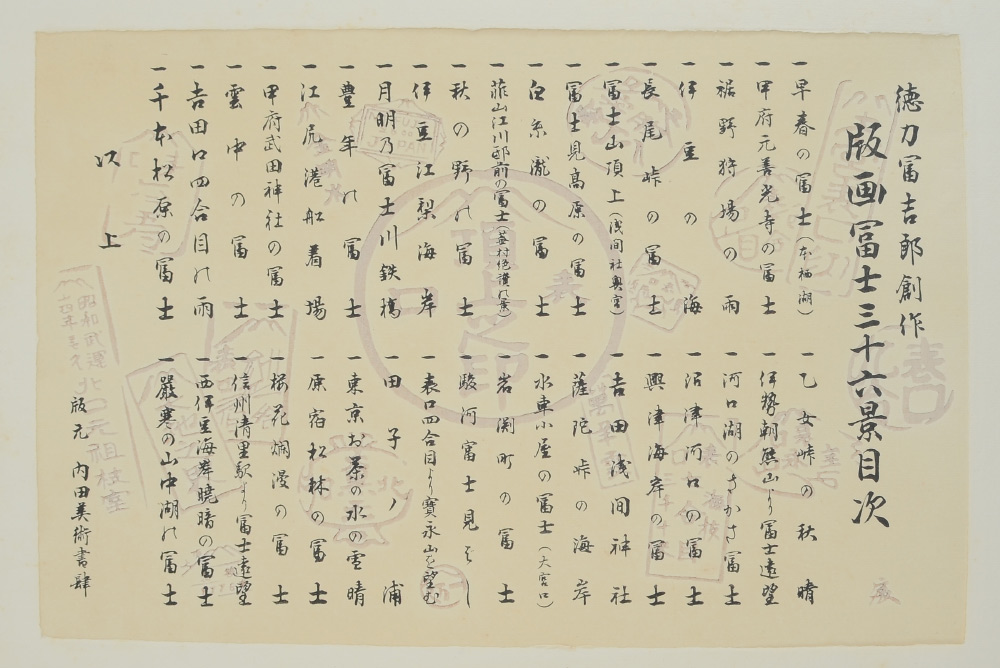 徳力冨吉郎創作
版画冨士三十六景目次
一早春の冨士(本栖湖)
一甲府元善光寺の冨士
一裾野狩場の雨
一伊豆の海
一長尾峠の冨士
一冨士山頂上(浅間社奥宮)
一冨士見高原の冨士
一白糸瀧の冨士
一韮山江川邸前の冨士(蕪村絶讃の景)
一秋の野の冨士
一伊豆江梨海岸
一月明乃冨士川鉄橋
一豊年の冨士
一江尻港船着場
一甲府武田神社の冨士
一雲中の冨士
一吉田口四合目の雨
一千本松原の冨士
以上
一乙女峠の秋晴
一伊勢朝熊山より冨士遠望
一河口湖のさかさ冨士
一沼津河口の冨士
一興津海岸の冨士
一吉田浅間神社
一薩陀峠の海岸
一水車小屋の冨士(大宮口)
一岩渕町の冨士
一駿河冨士見はし
一表口四合目より寶永山を望む
一田子ノ浦
一東京お茶の水の雪晴
一原宿松林の冨士
一桜花爛漫の冨士
一信州清里駅より冨士遠望
一西伊豆海岸暁暗の冨士
一嚴寒の山中湖の冨士
版元 内田美術書肆
頂上之印